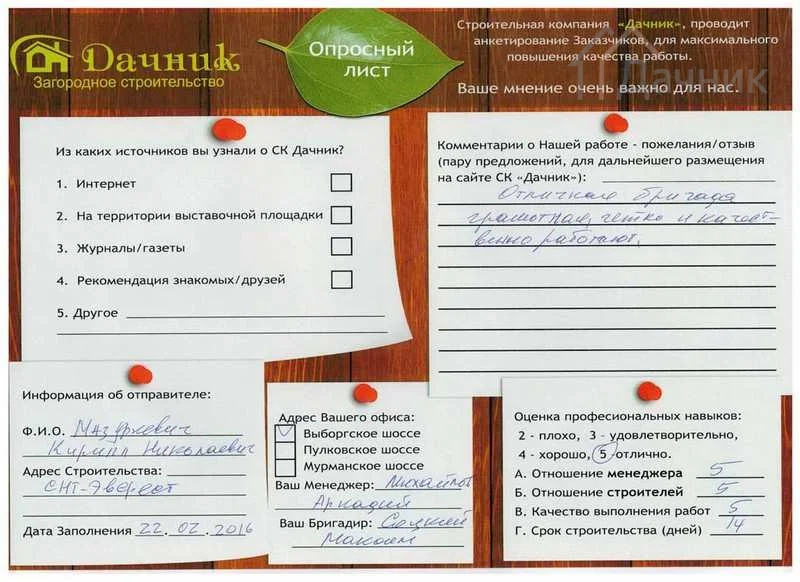 Дачник
Загородное строительство
Опросный
лист
Строительная компания «Дачник», проводит
анкетирование Заказчиков, для максимального
повышения качества работы.
Ваше мнение очень важно для нас.
Дачник
Из каких источников вы узнали о СК Дачник?
1. Интернет
2. На территории выставочной площадки
3. Журналы/газеты
4. Рекомендация знакомых/друзей
5. Другое
Комментарии о Нашей работе - пожелания/отзыв
(пару предложений, для дальнейшего размещения
на сайте СК «Дачник»):
Отличная бригада
грамотная, четко и качест-
венно работают.
Информация об отправителе:
Ф.И.О. Мазуркевич
Кирилл Николаевич
Адрес Строительства:
СНТ-Эверест
Дата Заполнения 22.02.2016
Адрес Вашего офиса:
Выборгское шоссе
Пулковское шоссе
Мурманское шоссе
Ваш Менеджер: Михайлов
Аркадий
Ваш Бригадир:
Максим
Оценка професиональных навыков:
2 - плохо, 3 - удовлетворительно,
4 - хорошо, 5 -отлично.
А. Отношение менеджера 5
Б. Отношение строителей 5
В. Качество выполнения работ 5
Г. Срок строительства (дней) 14